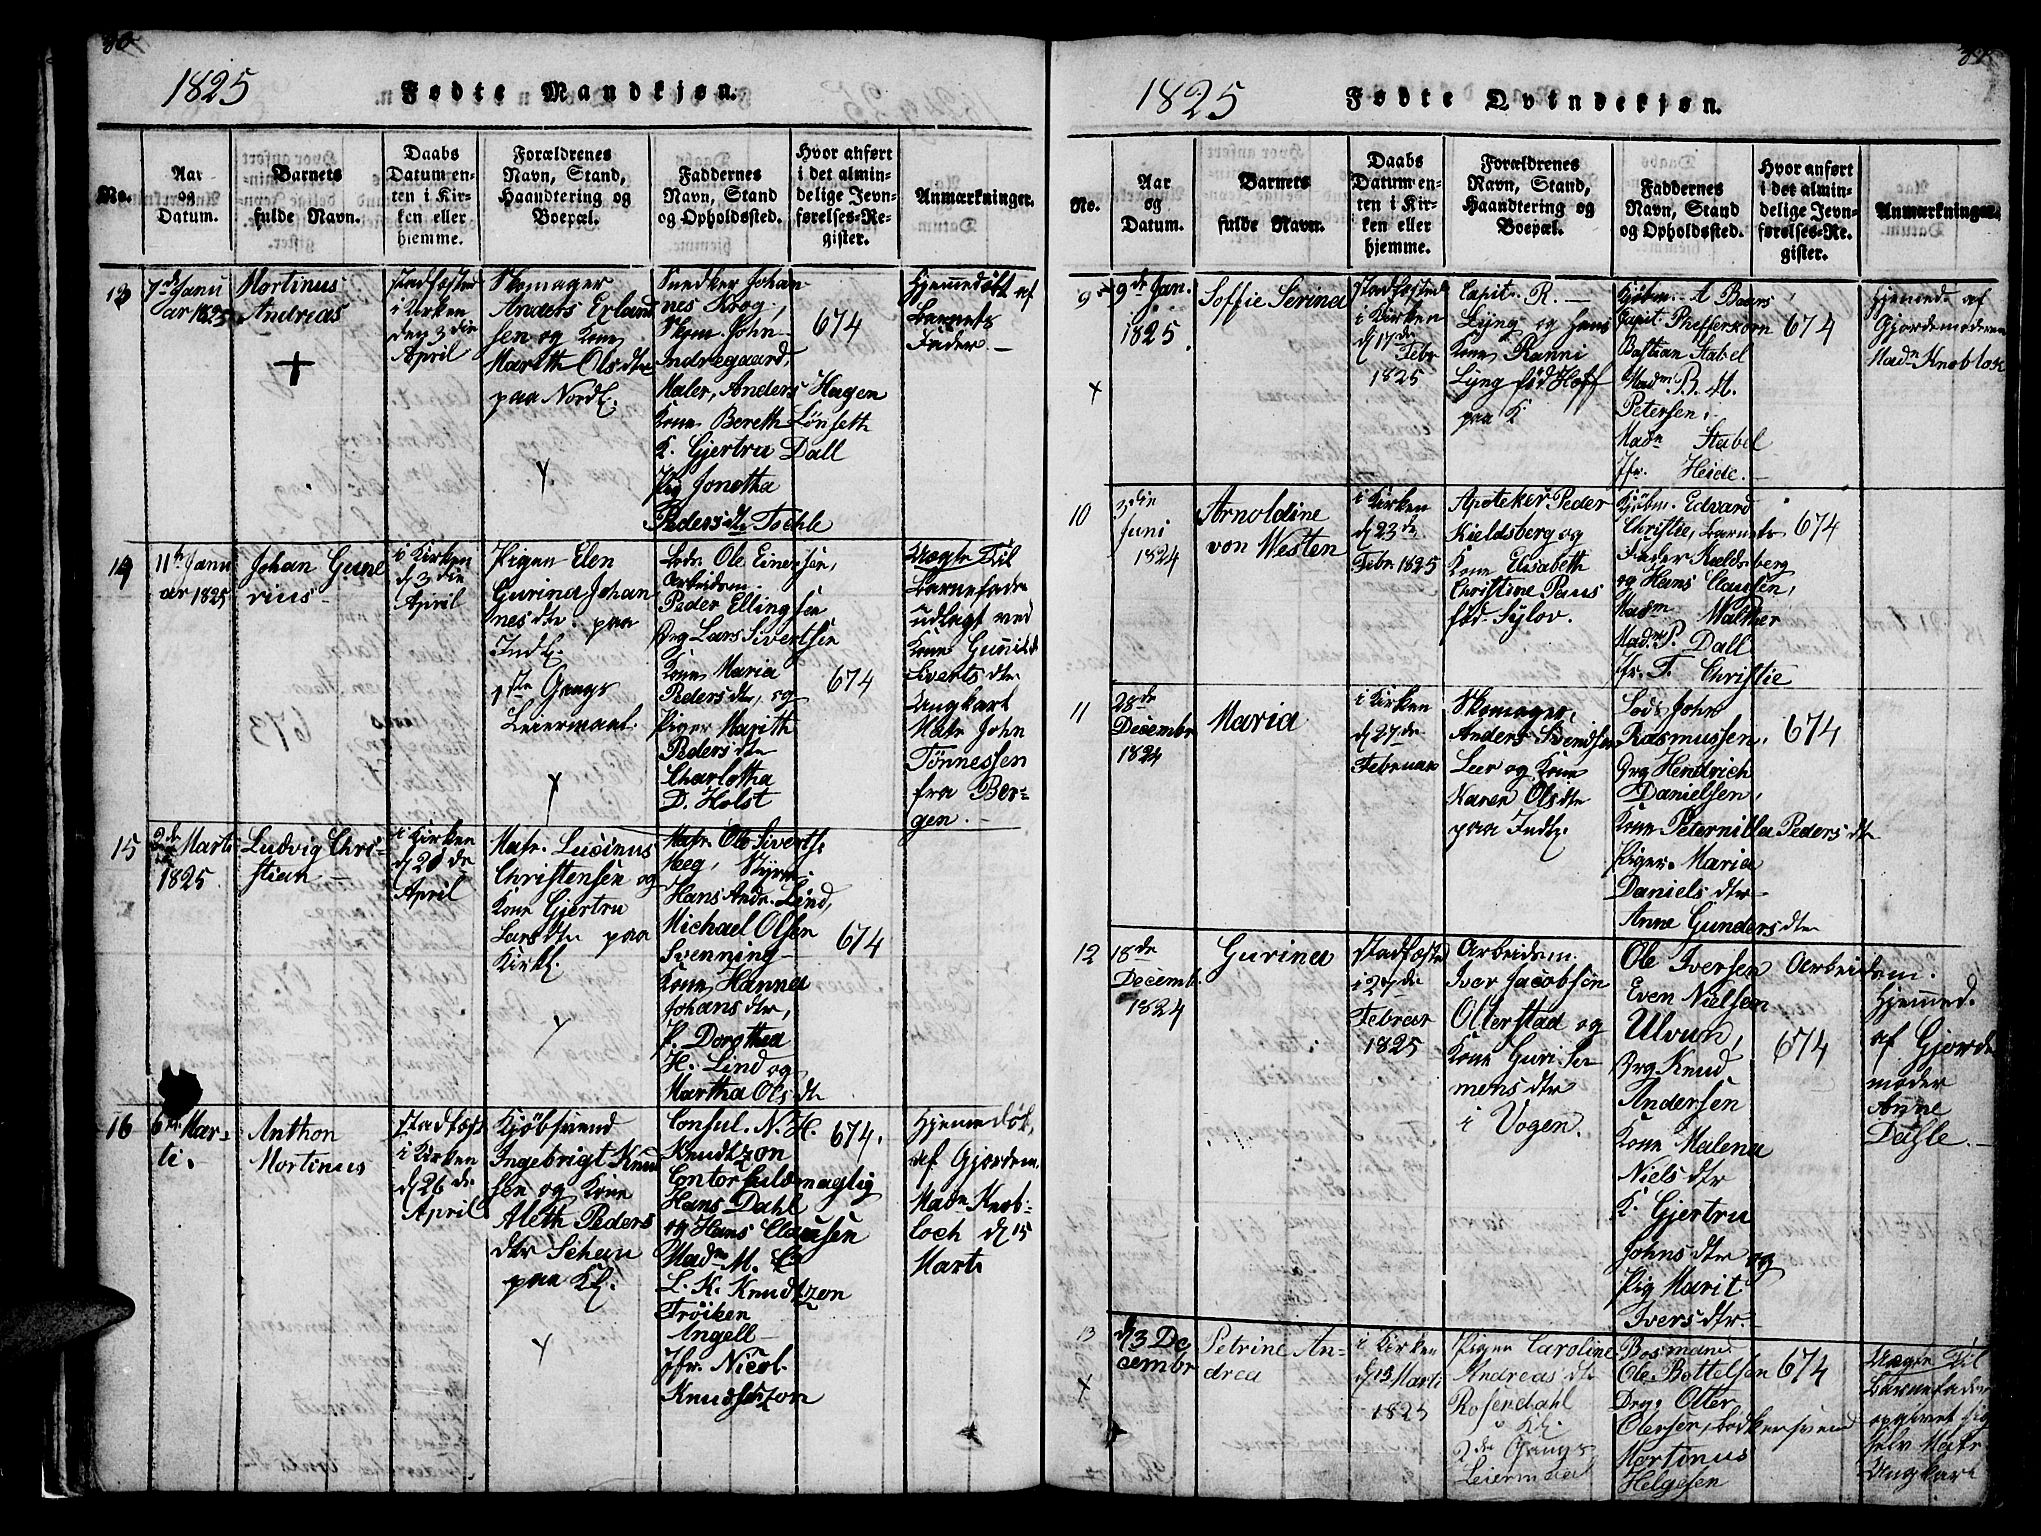 30
1825
Fødte Mandkjøn.
No.
Aar
og
Datum.
Barnets
fulde Navn.
Daabs
Datum en-
ten i Kir-
ken eller
hjemme.
Forældrenes
Navn, Stand,
Haandtering og
Boepæl.
Faddernes
Navn, Stand
og Opholdssted.
Hvor anført
i det almin-
delige Jevn-
førelses-Re-
gister.
Anmærkninger.
13
7de Janu
ar 1825
Mortinus
Andreas
Stadfæstet
i Kirken
den 3die
April
Skomager
Anders Erland
sen og Kone
Mareth Olsdtr
paa Nordl.
Snedker Johan
nes Krog,
Skom. John
Indregaard,
Maler, Anders Hagen
Kone Bereth Lønseth
K. Gjertru Dall
Pig Jonetha
Pedersdtr Tsehle
674
Hjemmedøbt af
Barnets
Fader.
14
11te Janu
ar 1825
Johan Gune
rius
i Kirken
d 3die
April
Pigen Elen
Gurina Johan
nesdtr. paa
Indl.
1ste Gangs
Leiermaal.
Lods Ole Einersen,
Arbeidsm.
Peder Ellingsen
Drg Lars Sivertsen
Kone Maria
Pedersdtr, og
Piger Marith
Pedersdtr
Charlotha
D. Holst
674
Uægte Til
Barnefader
udlagt ved
Kone Gunild
Sivertsdtr
Ungkarl
Matr John
Tønnessen
fra Ber-
gen.
15
2de Marti
1825
Ludvig Chri-
stian
i Kirken
d 20de
April
Matr. Lusinus
Christensen og
Kone Gjertru
Larsdtr paa
Kirkl.
Matr. Ole Siverts.
Heg, Styrm.
Hans Andr. Lind,
Michael Olsen
Svenning
Kone Hanna
Johansdtr,
P. Dorothea
H. Lind og
Martha Olsdtr
674
16
6te Mar-
ti.
Anthon
Mortinus
Stadfæst
i Kirken
d 26de
April
Kjøbsvend
Ingebrigt Knud
sen og Kone
Aleth Peders
dtr Schau
paa Kl.
Consul. N. H.
Knudtzon
Contorfuldmægtig
Hans Dahl
og Hans Clausen
Madm M. C.
L. K. Knudtzon
Frøiken
Angell
Jfr. Nicol.
Knudtzon
674.
Hjemmedøbt,
af Gjordem.
Madm Knob-
loch d 15
Marti
1825
Fødte Qvindekjøn.
No.
Aar
og
Datum.
Barnets
fulde Navn.
Daabs
Datum en-
ten i Kir-
ken eller
hjemme.
Forældrenes
Navn, Stand,
Haandtering og
Boepæl.
Faddernes
Navn, Stand
og Opholdssted.
Hvor anført
i det almin-
delige Jevn-
førelses-Re-
gister.
Anmærkninger.
9
9de Jan.
1825
Soffie Serina
Stadfæstet
i Kirken
d 17de
Febr
1825
Capit. R.
Lyng og hans
Kone Ranni
Lyng fød Hoff
paa K
Kjøbm. A Baars
Capit Phefferkorn
Bastian Stabel
Madm R. H.
Petersen.
Madm Stabel
Jfr. Heide.
674
Hjemmed. af
Gjordemoderen
Madm Knoblok
10
3die
Juni
1824
Arnoldine
von Westen
i Kirken
d 23de
Febr 1825
Apoteker Peder
Kieldsberg og
Kone Elisabeth
Christine Paus
fød Sylov.
Kjøbm. Edvard
Christie, Barnets
Fader Kieldsberg
og Hans Clausen,
Madm Walther
Madm P. Dall
Jfr. F. Christie
674
11
28de
Decembr
1824
Maria
i Kirken
d 27de
Februar
Skomager,
Anders Svendsen
Leer og Kone
Karen Olsdtr
paa Indl.
Lods John
Rasmussen,
Drg Hendrich
Danielsen,
Kone Peternilla Pedersdtr
Piger. Maria
Danielsdtr
Anne Gundersdtr
674
12
18de
Decemb.
1824
Gurina
Stadfæstet
i 27de
Februar
1825
Arbeidsm.
Iver Jacobsen
Olterstad og
Kone Guri Si-
mensdtr
i Vogen.
Ole Iversen Arbeidsm.
Even Nielsen
Ulvun,
Drg Knud
Andersen
Kone Malena
Nielsdtr
K. Gjertru
Johnsdtr og
Pig Marit
Iversdtr.
674
Hjemmed.
af Gjorde
moder
Anne
Dahle.
13
d 3 De
cembr
Petrine An-
drea
i Kirken
d 13 Marti
1825
Pigen Caroline
Andreasdtr
Rosendahl
Kl.
2de Gangs
Leiermaal
Bosmand
Ole Bottelsen
Drg. Olter
Olersen, Bødkersvend
Mortinus
Helgesen
674
Uægte Til
Barnefader
opgivet sig
selv Matr.
Ungkarl